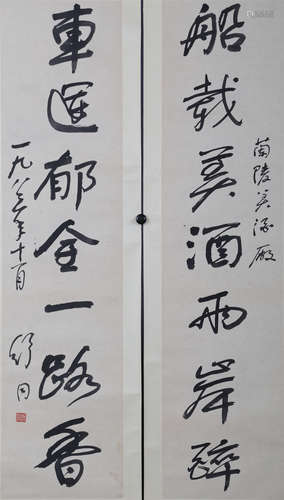 蘭陵美酒廠
船載美酒兩岸醉
車運郁金一路香
一九八三年十一月
舒同